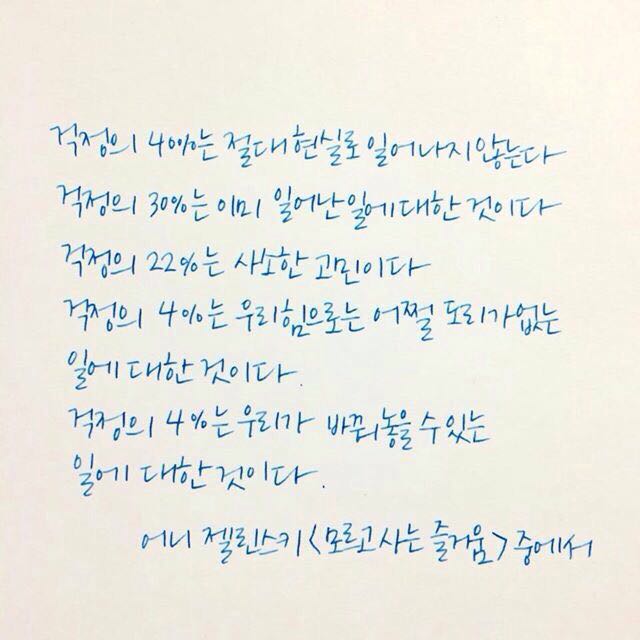 걱정의 40%는 절대 현실로 일어나지 않는다
걱정의 30%는 이미 일어난 일에 대한 것이다
걱정의 22%는 사소한 고민이다
걱정의 4%는 우리 힘으로는 어쩔 도리가 없는
일에 대한 것이다.
걱정의 4%는 우리가 바꿔놓을 수 있는
일에 대한 것이다.
어니 젤린스키 <모르고 사는 즐거움> 중에서